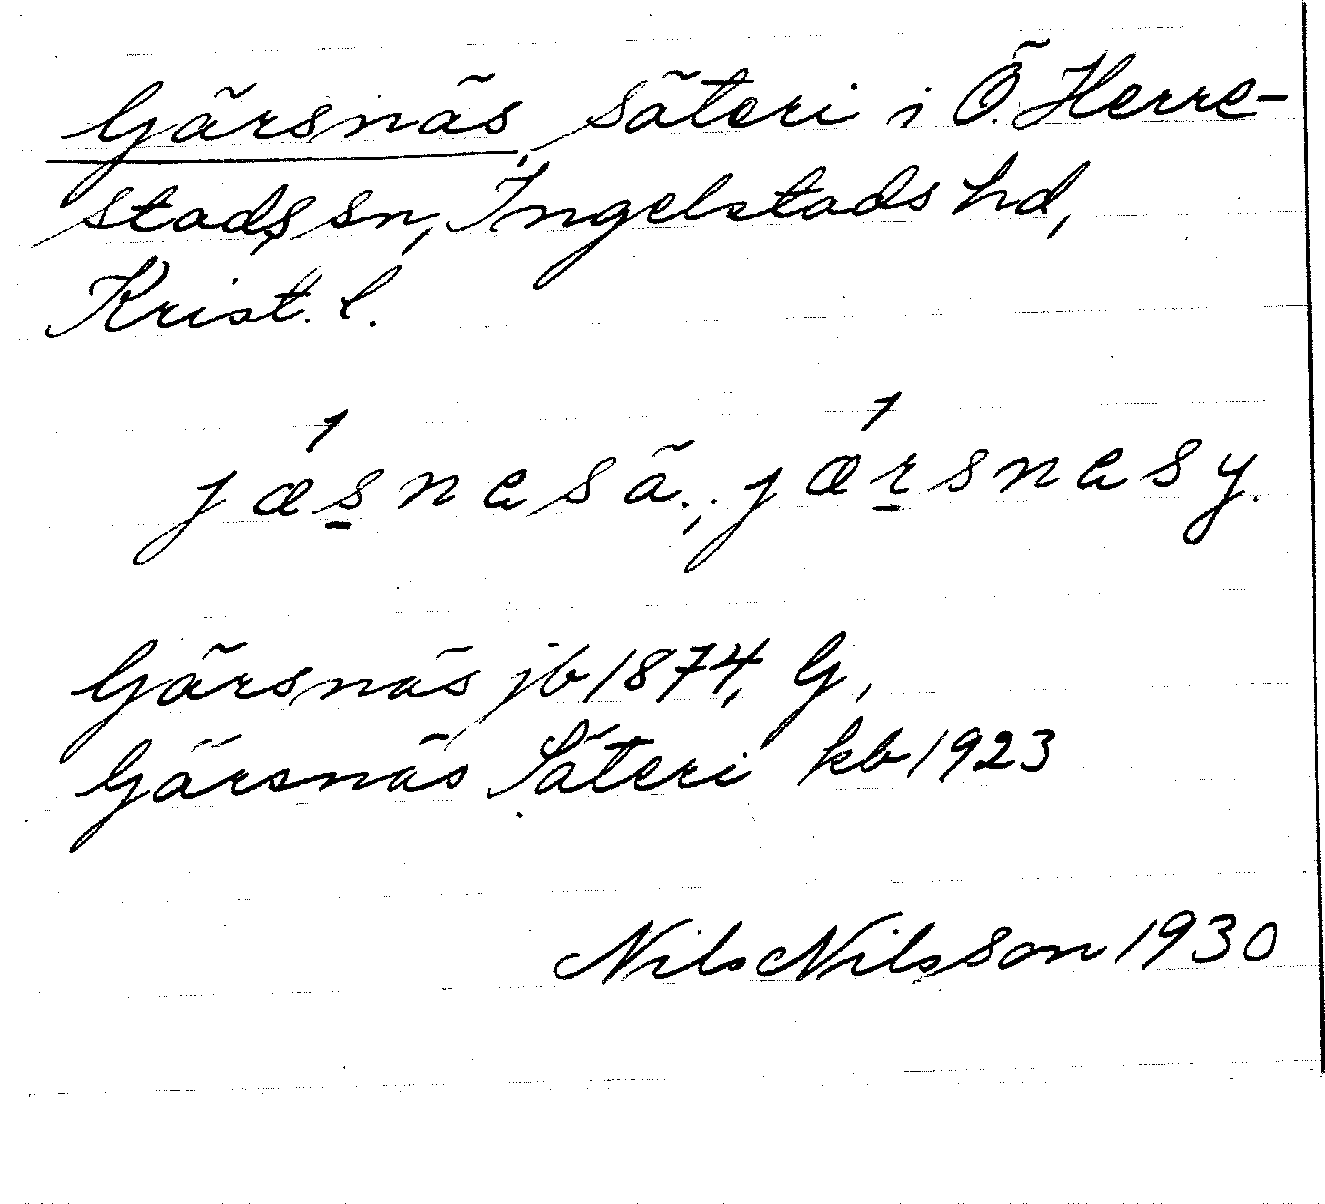 Gärsnäs, säteri i Ö. Herre-
stads sn, Ingelstads hd,
Krist. l.
jǽs̱nesä., jǽṟsnesy.
Gärsnäs jb 1874, G,
Gärsnäs Säteri kb 1923
Nils Nilsson 1930